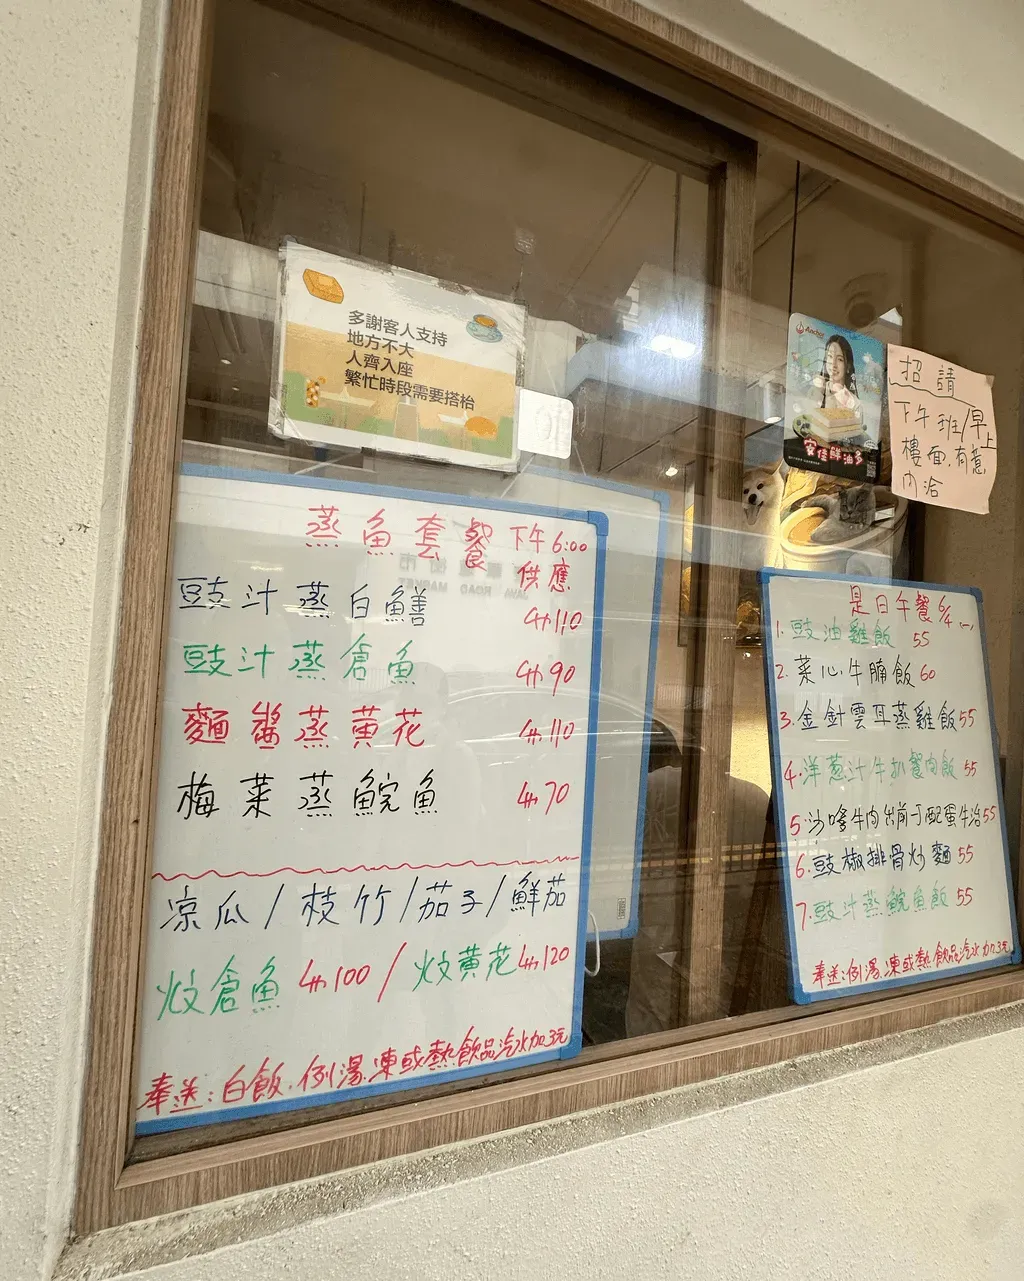 多謝客人支持
地方不大
人齊入座
繁忙時段需要搭枱
Anchor
安佳鮮油多
招請
下午班/早上
樓面.有意
內洽
蒸魚套餐 下午6:00
供應
豉汁蒸白鱔 110
豉汁蒸倉魚 90
麵醬蒸黄花 110
梅菜蒸鯇魚 70
凉瓜/枝竹/茄子/鮮茄
炆倉魚 100/炆黄花 120
奉送:白飯.例湯.凍或熱飲品汽水加3元
JAVA ROAD MARKET
是日午餐 6/4 (一)
1. 豉油雞飯 55
2. 菜心牛腩飯 60
3. 金針雲耳蒸雞飯 55
4. 洋葱汁牛扒餐肉飯 55
5. 沙嗲牛肉公前丁配蛋牛治 55
6. 豉椒排骨炒麵 55
7. 豉汁蒸鯇魚飯 55
奉送:例湯.凍或熱飲品汽水加3元